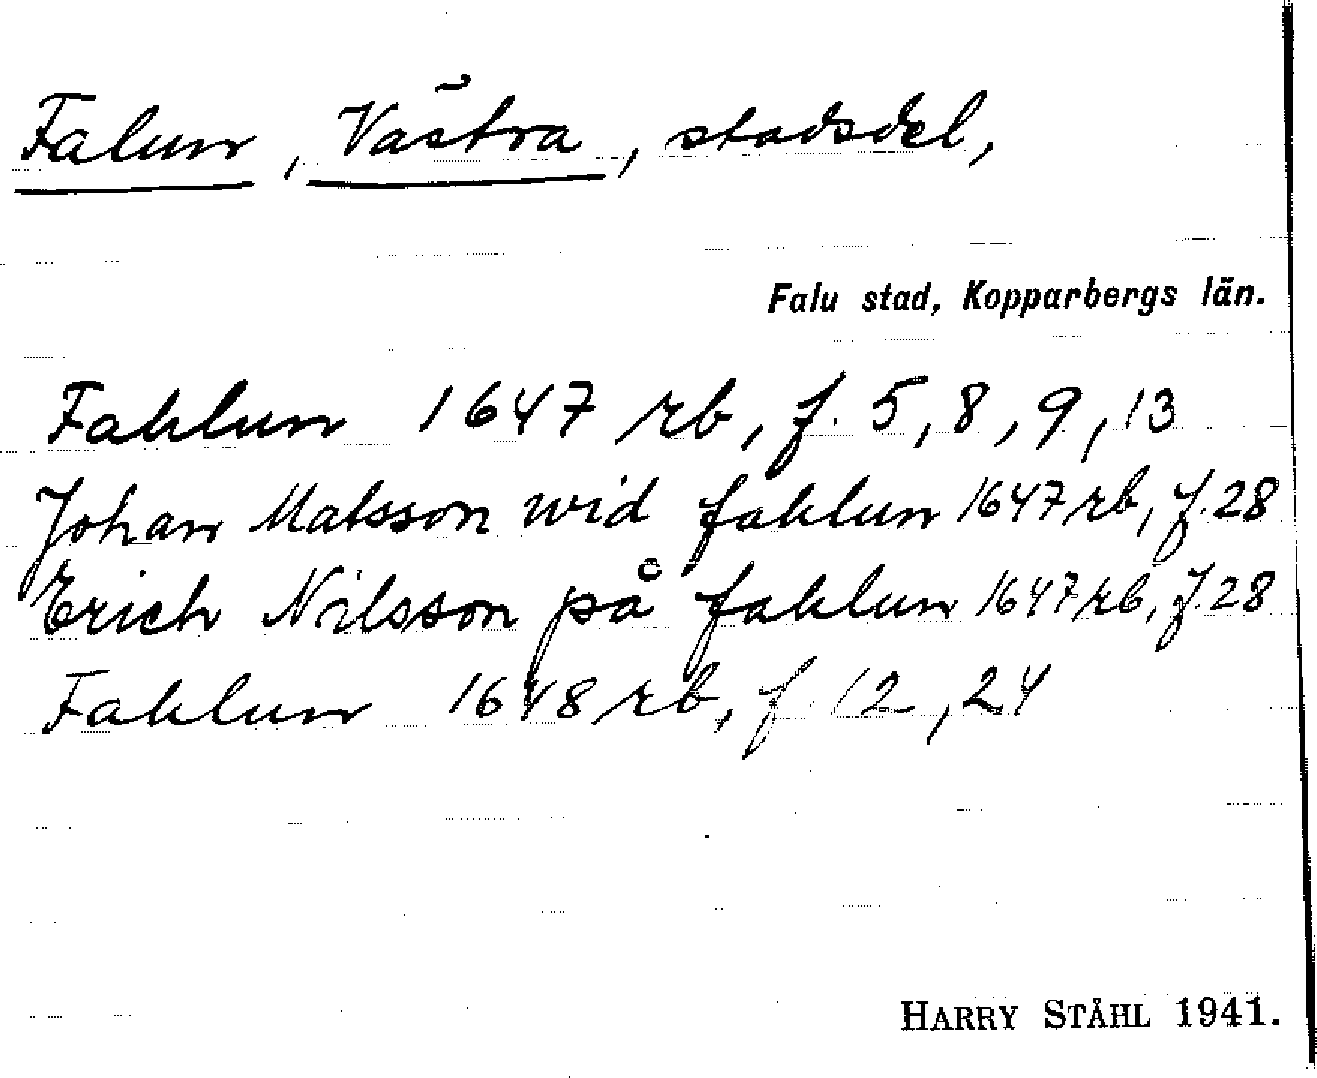 Falun, Västra, stadsdel,
Falu stad, Kopparbergs län.
Fahlun 1647 rb, f. 5, 8, 9, 13
Johan Matsson wid fahlun 1647 rb, f. 28
Erich Nilsson på fahlun 1647 rb, f. 28
Fahlun 1648 rb, f 12, 24
HARRY STÅHL 1941.